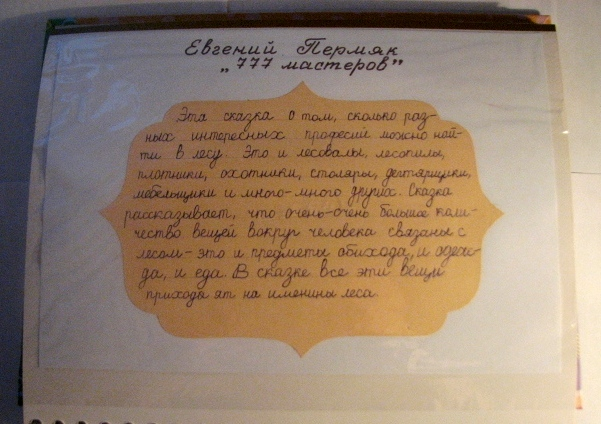 Евгений Пермяк
„777 мастеров”
Эта сказка о том, сколько раз-
ных интересных професий можно най-
ти в лесу. Это и лесовалы, лесопилы,
плотники, охотники, столяры, дегтярщики,
мебельщики и много-много других. Сказка
рассказывает, что очень-очень большое коли-
чество вещей вокруг человека связаны с
лесом - это и предметы обихода, и одеж-
да, и еда. В сказке все эти вещи
приходы ят на именины леса.